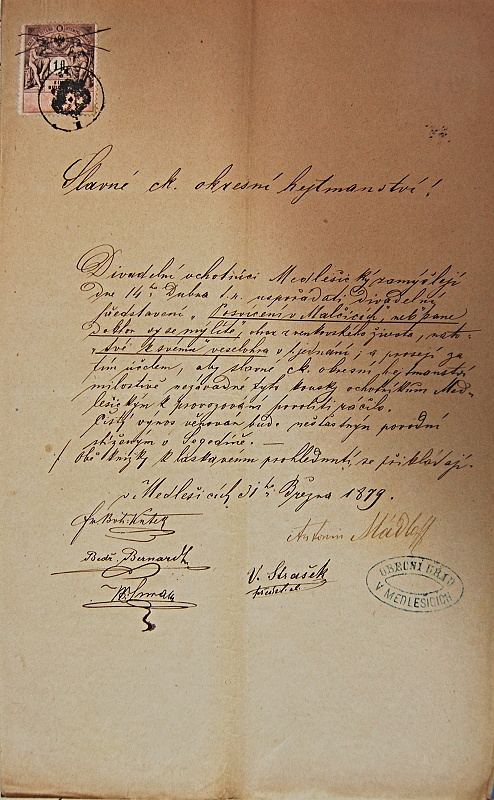 Slavné ck. okresní hejtmanství!
Divadelní ochotníci Medlešičtí zamýšlejí
dne 14ho Dubna t.r. uspořádati divadelní
představení „Posvícení v Malčicích" neb „pane
Doktor vyse mýlíte", obraz z venkovského života,
„své k svému" veselohra v 1 jednání; a prosejí za
tím účelem, aby slavné ck. okresní hejtmanství
milostivě nejúvodné tyto kousky ochotníkům Med-
lešickým k provozování povoliti ráčilo.
Čistý výnos věnován bude nešťastným povodní
stíženým v Segedíně. —
Obě knížky k láskavému prohlédnutí se přikládají.
v Medlešicích 31ho Března 1879.
Antonín Mádlo
Bedř. Bernardt
V. Strašek
OBECNÍ ÚŘAD
V MEDLEŠICÍCH